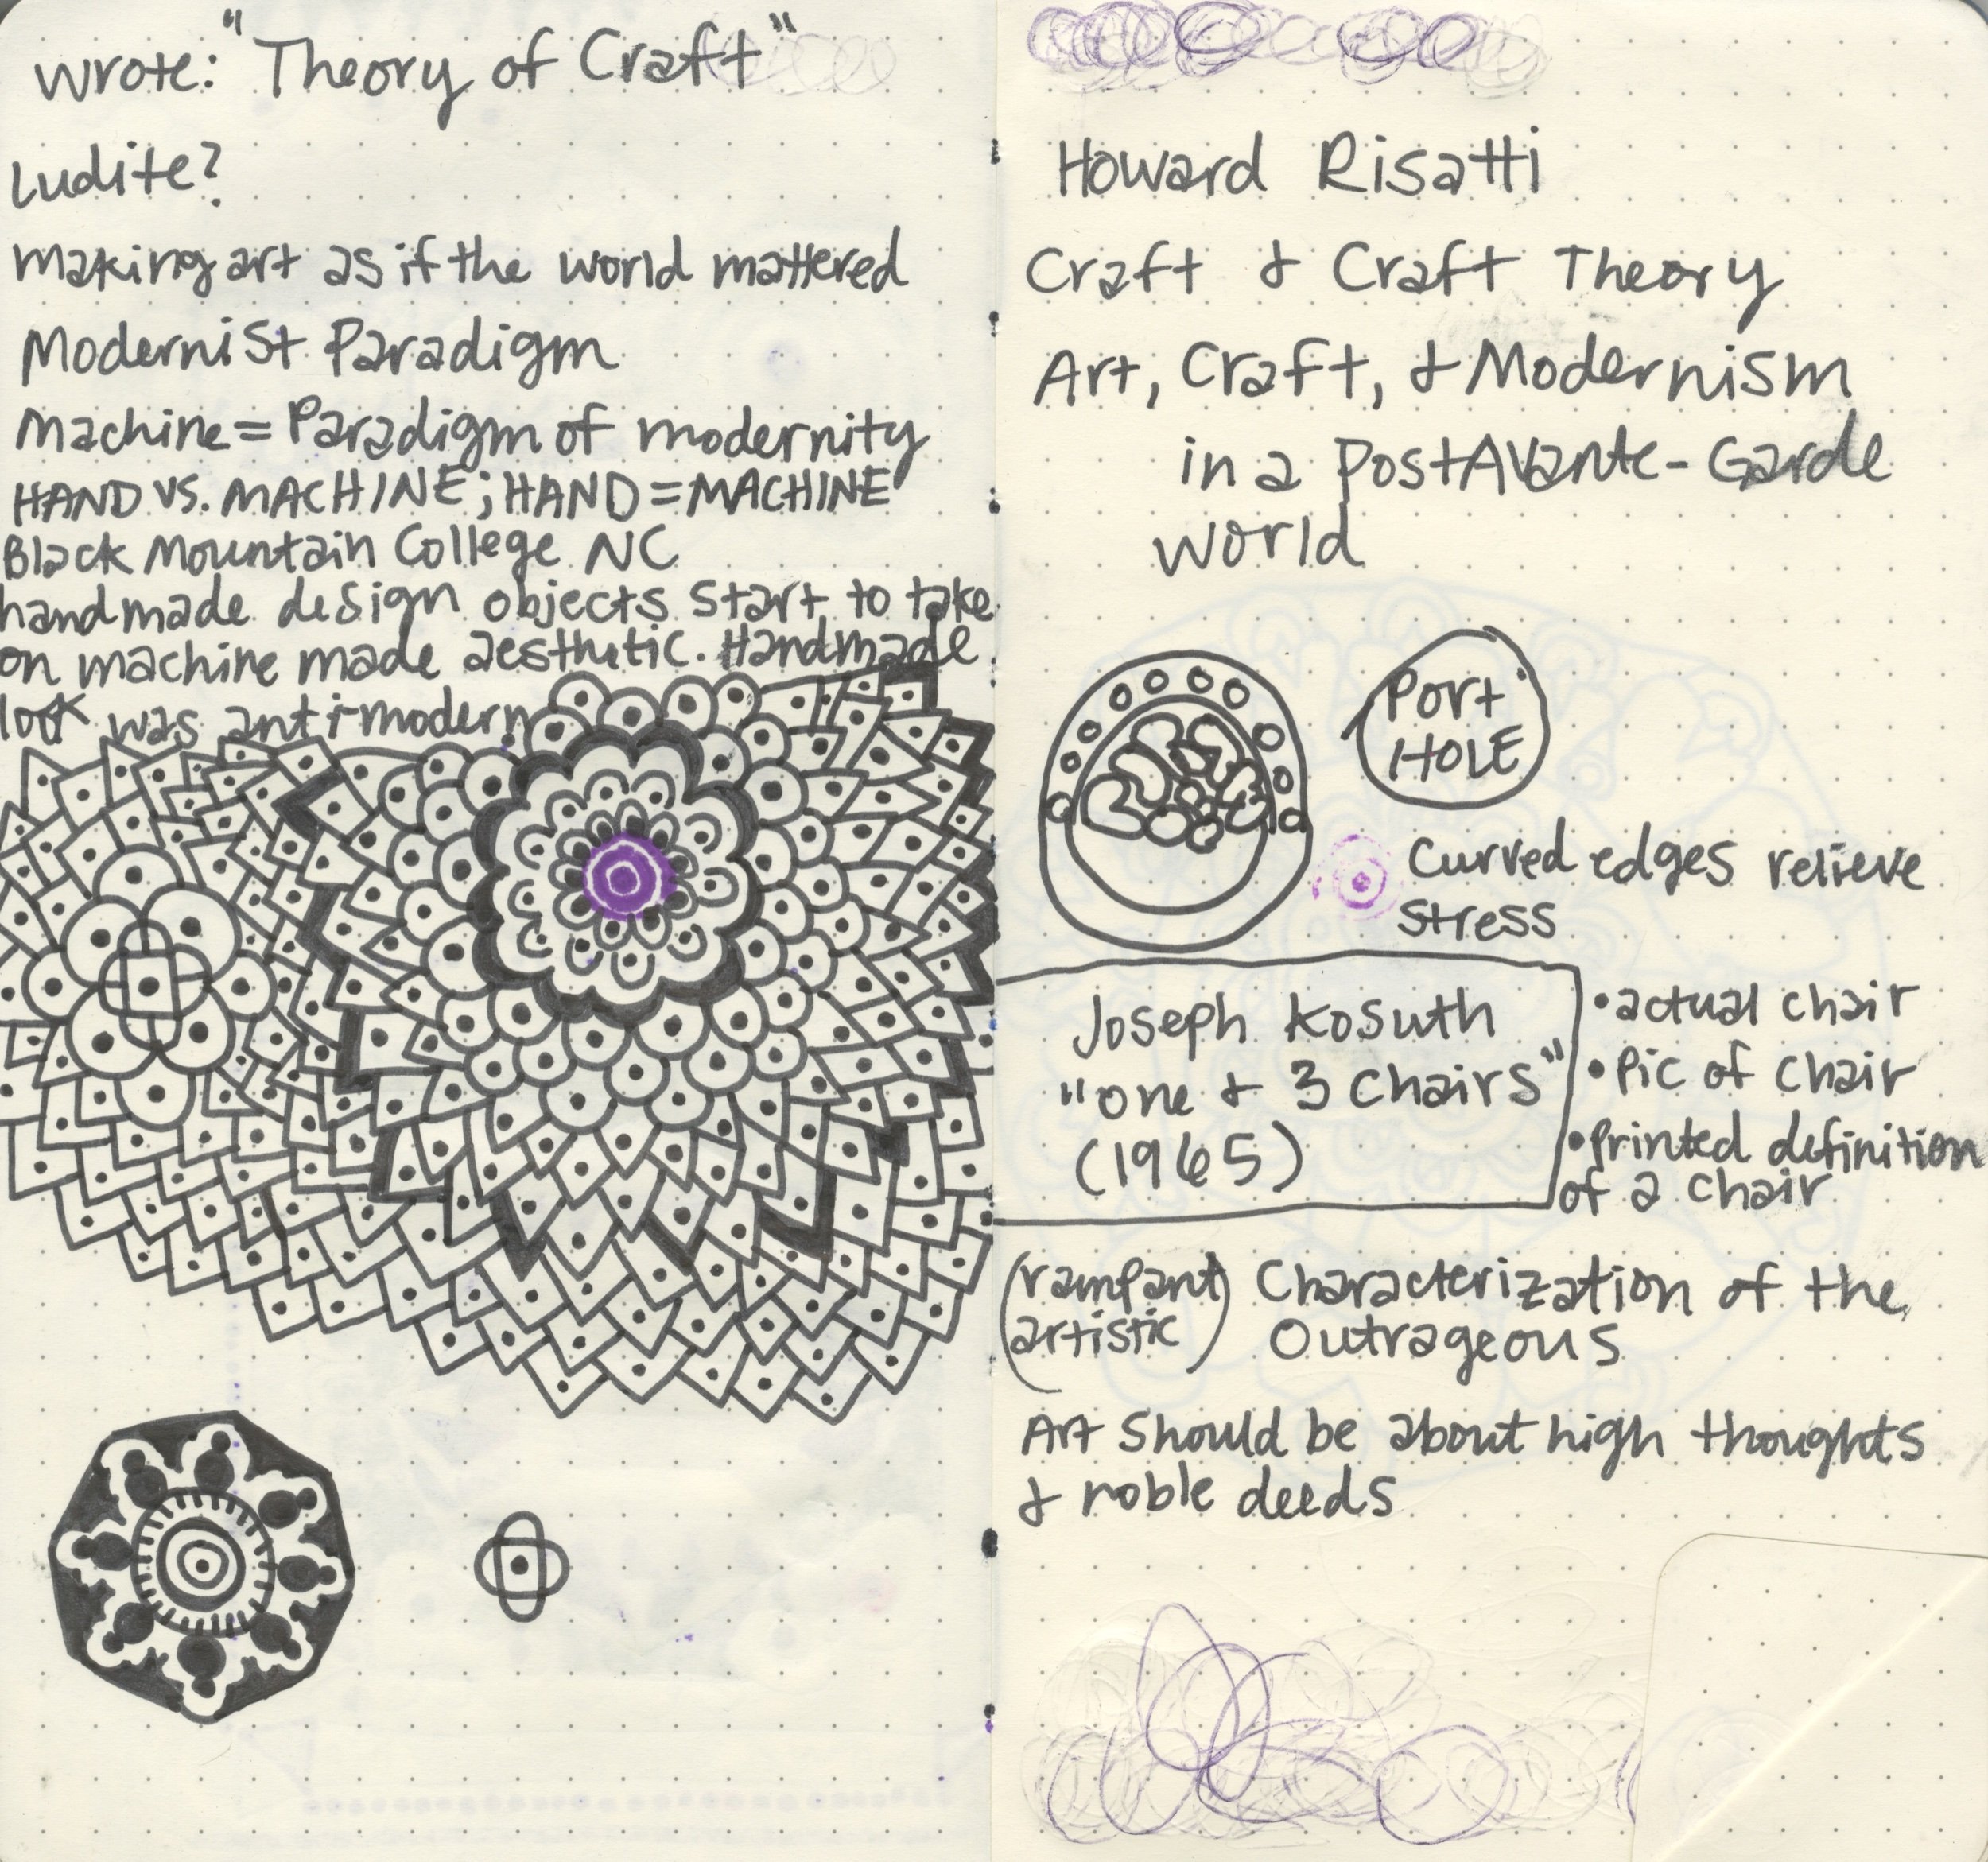 wrote: "Theory of Craft"
Ludite?
making art as if the world mattered
Modernist Paradigm
machine = Paradigm of modernity
HAND VS. MACHINE; HAND = MACHINE
Black Mountain College NC
handmade design objects start to take
on machine made aesthetic. Handmade
look was anti-modern
Howard Risatti
Craft & Craft Theory
Art, Craft, & Modernism
in a PostAvante-Garde
world
PORT
HOLE
Curved edges relieve
stress
Joseph Kosuth
"one & 3 Chairs"
(1965)
• actual chair
• Pic of chair
• printed definition
of a chair
(rampant artistic) Characterization of the
Outrageous
Art should be about high thoughts
& noble deeds